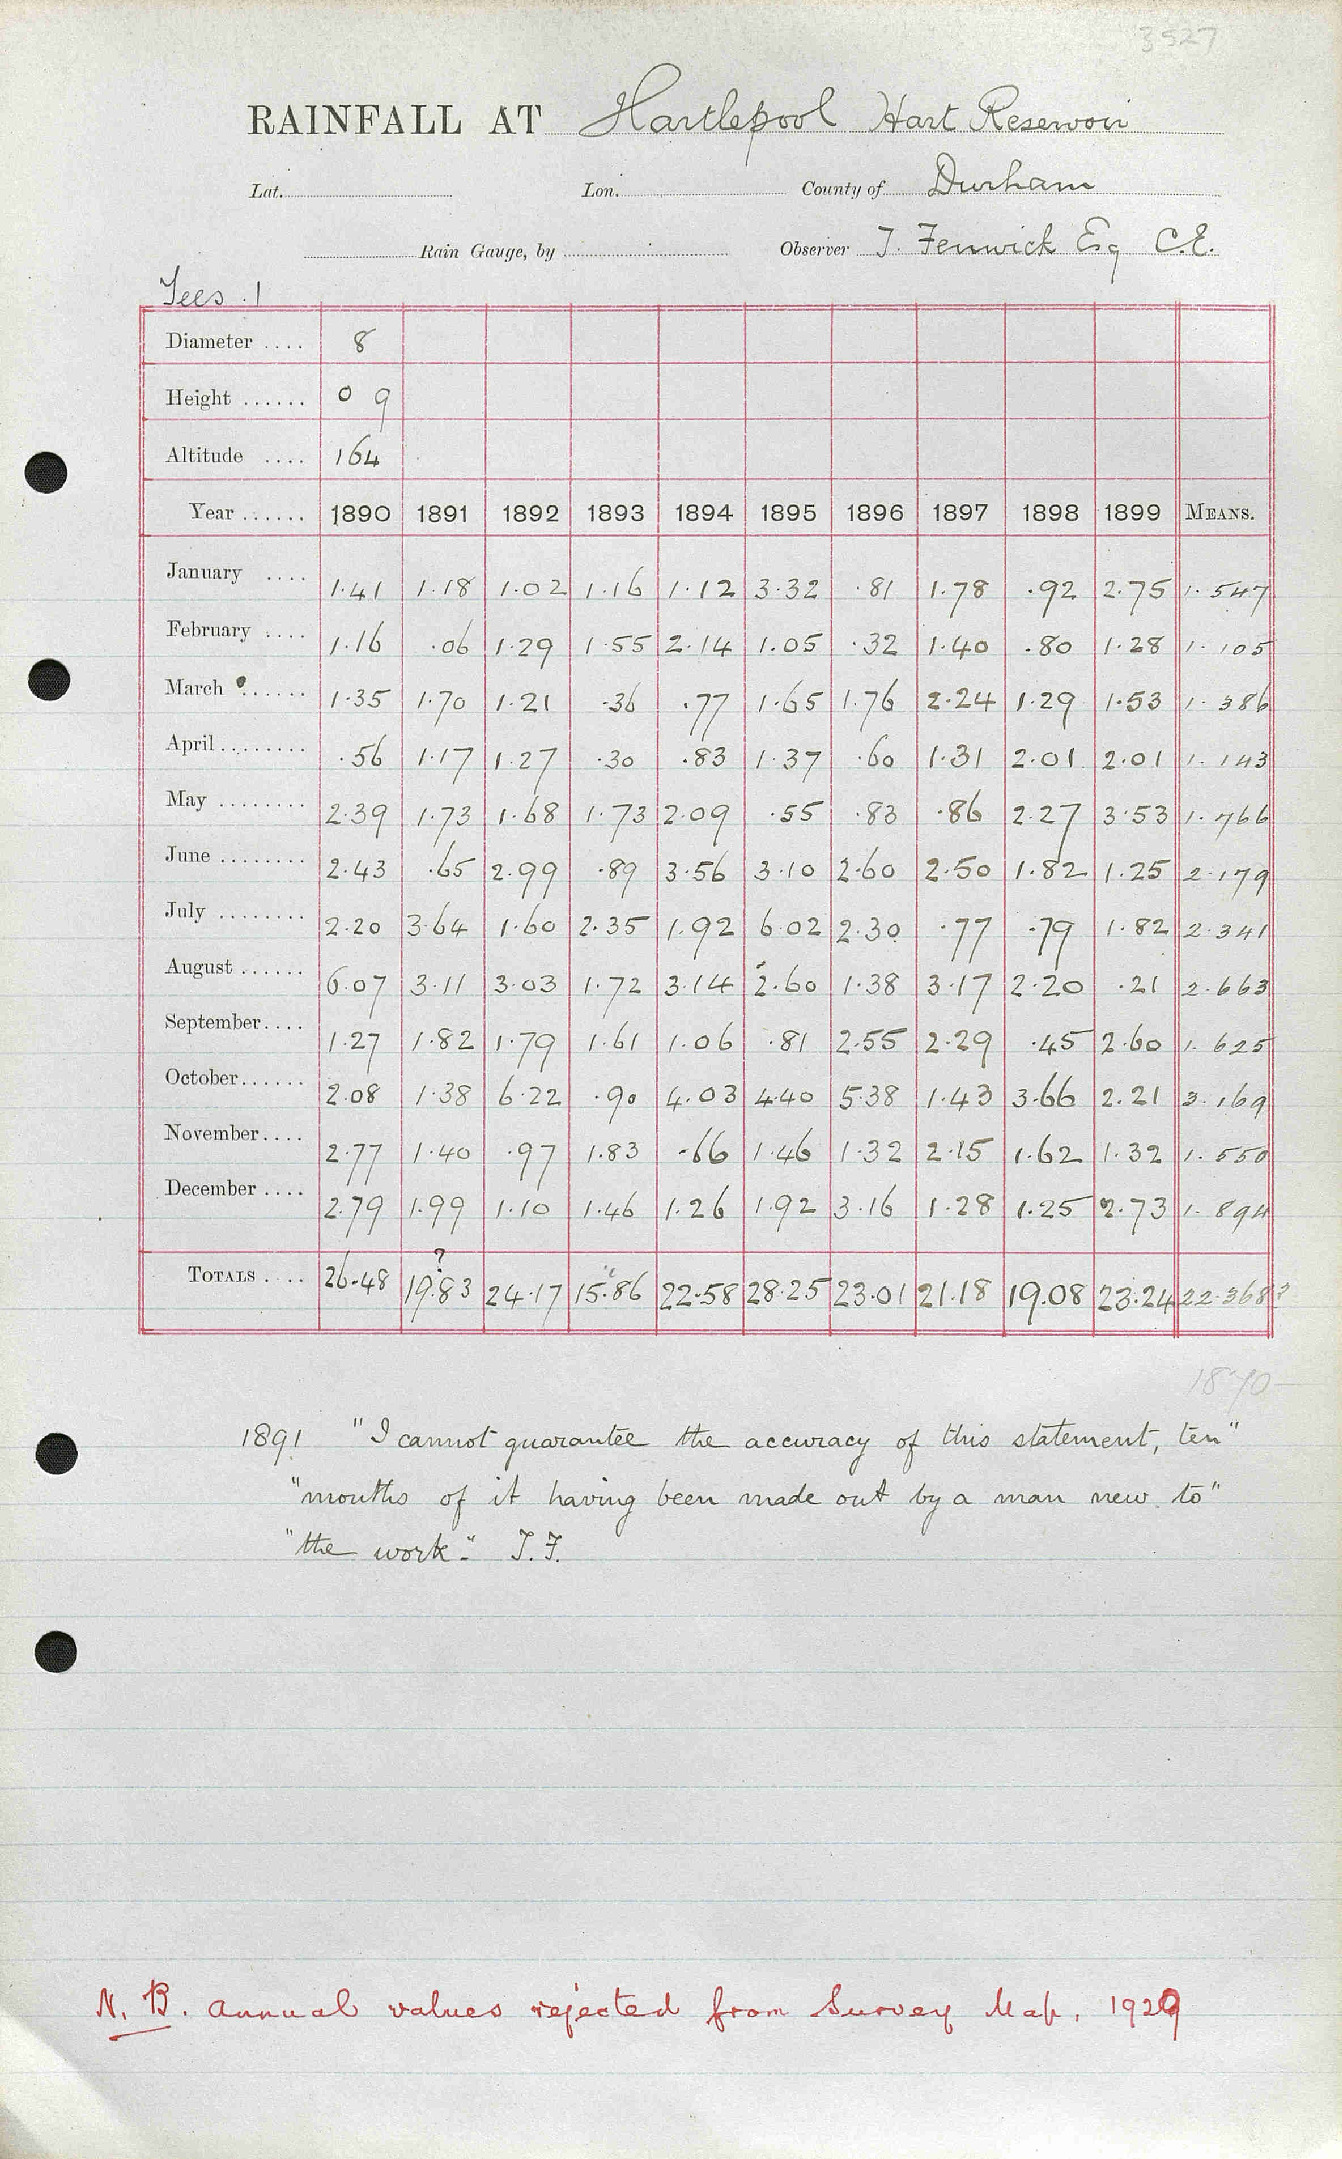 3527
RAINFALL AT Hartlepool Hart Reservoir
Lat. Lon. County of Durham
Rain Gauge, by Observer T. Fenwick Esq C.E.
Tees 1
Diameter .... 8
Height ...... 0 9
Altitude .... 164
Year ...... 1890 1891 1892 1893 1894 1895 1896 1897 1898 1899 MEANS.
January .... 1.41 1.18 1.02 1.16 1.12 3.32 .81 1.78 .92 2.75 1.547
February .... 1.16 .06 1.29 1.55 2.14 1.05 .32 1.40 .80 1.28 1.105
March ...... 1.35 1.70 1.21 .36 .77 1.65 1.76 2.24 1.29 1.53 1.386
April ........ .56 1.17 1.27 .30 .83 1.37 .60 1.31 2.01 2.01 1.143
May ........ 2.39 1.73 1.68 1.73 2.09 .55 .83 .86 2.27 3.53 1.766
June ........ 2.43 .65 2.99 .89 3.56 3.10 2.60 2.50 1.82 1.25 2.179
July ........ 2.20 3.64 1.60 2.35 1.92 6.02 2.30 .77 .79 1.82 2.341
August ...... 6.07 3.11 3.03 1.72 3.14 2.60 1.38 3.17 2.20 .21 2.663
September.... 1.27 1.82 1.79 1.61 1.06 .81 2.55 2.29 .45 2.60 1.625
October...... 2.08 1.38 6.22 .90 4.03 4.40 5.38 1.43 3.66 2.21 3.169
November.... 2.77 1.40 .97 1.83 .66 1.46 1.32 2.15 1.62 1.32 1.550
December .... 2.79 1.99 1.10 1.46 1.26 1.92 3.16 1.28 1.25 2.73 1.894
?
TOTALS .... 26.48 19.83 24.17 15.86 22.58 28.25 23.01 21.18 19.08 23.24 22.368?
1870
1891 "I cannot guarantee the accuracy of this statement, ten"
"months of it having been made out by a man new to"
"the work." T.F.
N.B. Annual values rejected from Survey Map, 1929